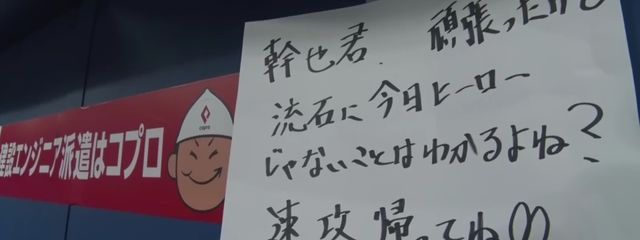 幹也君、頑張ったけど
流石に今日ヒーロー
じゃないことはわかるよね?
速攻帰ってね
建設エンジニア派遣はコプロ
copro